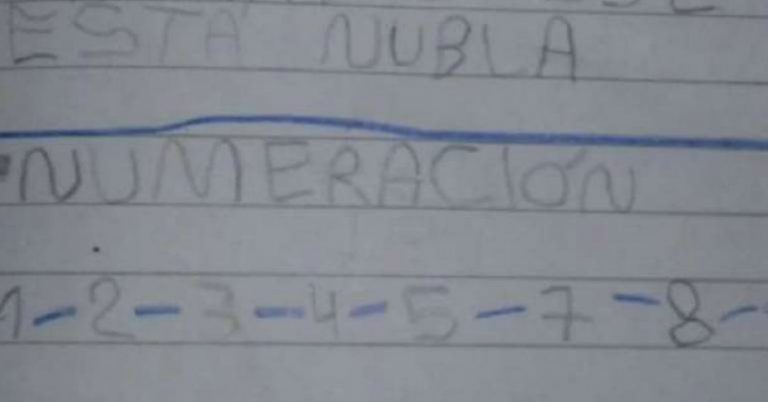 ESTÁ NUBLA
NUMERACIÓN
1-2-3-4-5-7-8-